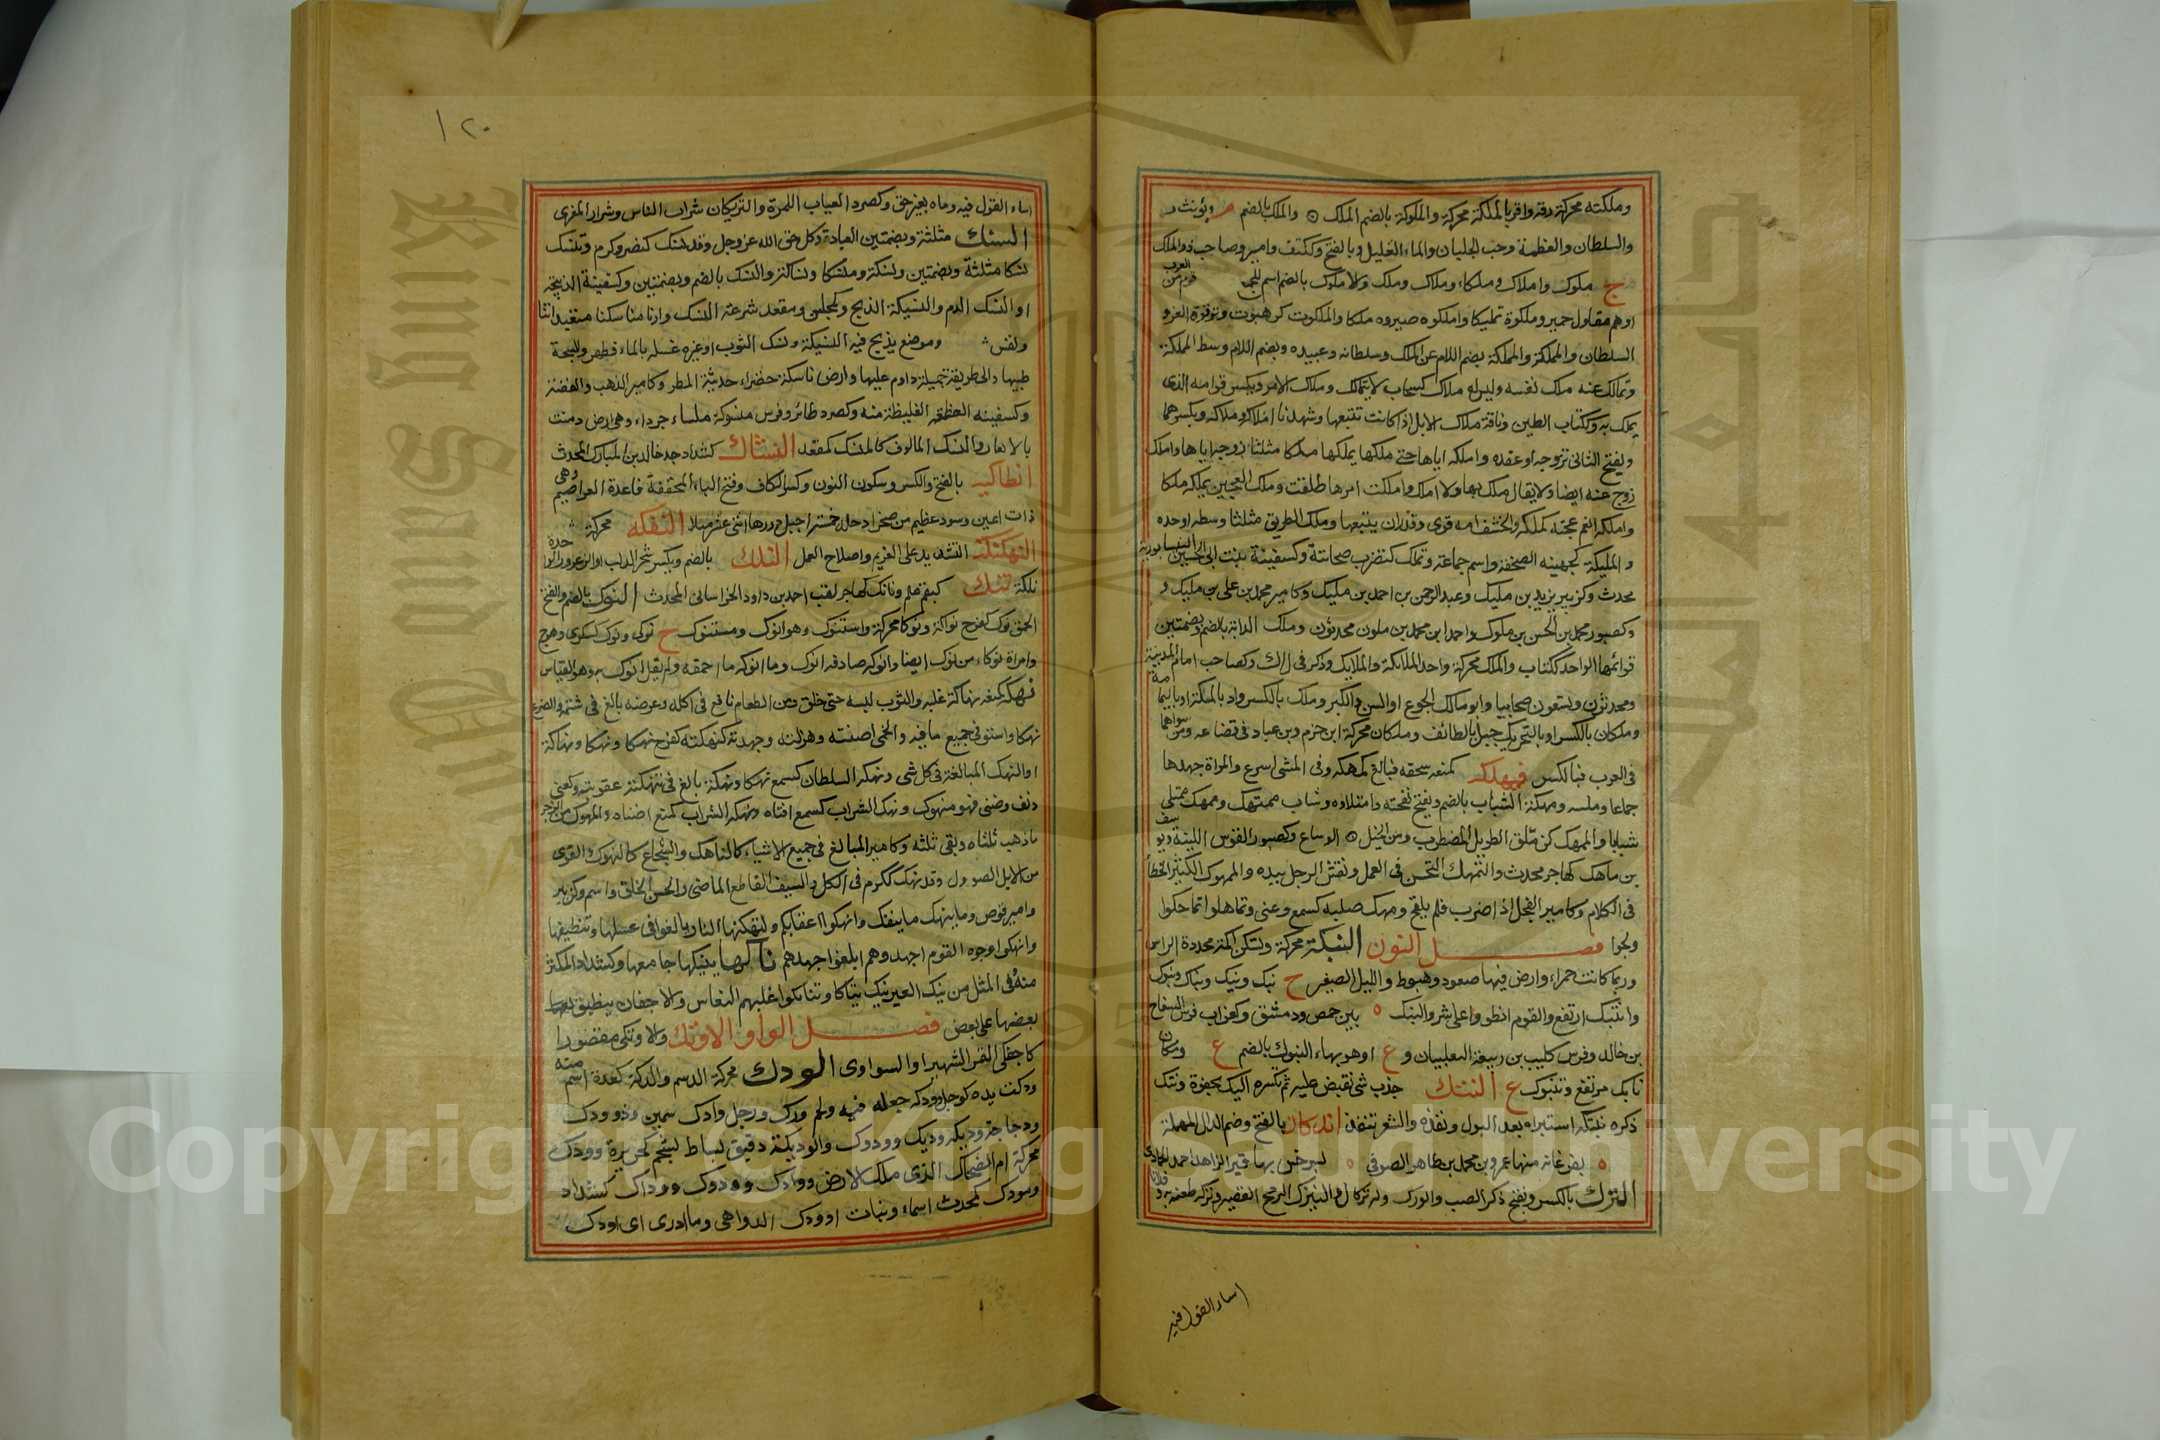 وملكته محركة رقه واقر بالملكة محركة والملوكة بالضم الملك ه والملك بالضم م ويؤنث و
والسلطان والعظمة وحب الجلبان والماء القليل وبالفتح وككتف وامير وصاحب ذو الملك
ج ملوك واملاك وملكاء وملاك وملك والاملوك بالضم اسم للجمع قوم من العرب
او هم مقاول حمير وملكوه تمليكا واملكوه صيروه ملكا والملكوت كرهبوت وترقوة العز و
السلطان والمملكة والمملكة بضم اللام عز الملك وسلطانه وعبيده وبضم اللام وسط المملكة
وتمالك عنه ملك نفسه وليس له ملاك كسحاب لا يتمالك وملاك الامر ويكسر قوامه الذى
يملك به وككتاب الطين وناقة ملاك الابل اذا كانت تتبعها وشهدنا املاكه وملاكه ويكسرهما
ويفتح الثانى تزوجه او عقده واملكه اياها حتى ملكها يملكها ملكا مثلثا زوجه اياها واملك
زوج عنه ايضا ولا يقال ملك بها ولا املك واملكت امرها طلقت وملك العجين يملكه ملكا
واملكه انعم عجنه كملكه والخشف امه قوى وقدر ان يتبعها وملك الطريق مثلثا وسطه او حده
والمليكة كجهينة الصحيفة واسم جماعة وتملك كتضرب صحابية وكسفينة بنت ابى الحسين النيسابورية
محدث وكزبير يزيد بن مليك وعبد الرحمن بن احمد بن مليك وكامير محمد بن على بن مليك و
وكصبور محمد بن الحسن بن ملوك واحمد بن محمد بن ملوك محدثون وملك الدابة بالضم وبضمتين
قوائمها الواحد ككتاب والملك محركة واحد الملائكة والملايك وذكر فى ل اك وكصاحب امام المدينة
ومحدثون وتسعون صحابيا وابو مالك الجوع او السن والكبر وملك بالكسر واد بالمكة او باليمامة
وملكان بالكسر او بالتحريك جبل بالطائف وملكان محركة ابن جرم وبن عباد فى قضاعة ومن سواهما
فى العرب فبالكسر فمهكه كمنعه سحقه فبالغ كمهكه وفى المشى اسرع والمراة جهدها
جماعا وملسه ومهكة الشباب بالضم ويفتح نفخته وامتلاؤه وشاب ممتهك وممهك ممتلى
شبابا والممهك كزملق الطويل المضطرب ومن الخيل ه الوساع وكصبور القوس اللينة ويوسف
بن ماهك كهاجر محدث والتمهك التحسن فى العمل ونقش الرجل بيده والممهوك الكثير الخطا
فى الكلام وكامير الفحل اذا ضرب فلم يلقح ومهك صلبه كسمع وعنى وتماهلوا تماحكوا
ولجوا فصل النون النبكة محركة وتسكن اكمة محددة الراس
وربما كانت حمراء وارض فيها صعود وهبوط والتل الصغير ج نبك ونبك ونباك ونبوك
وانتبك ارتفع والقوم انطووا على شر والنبك ه بين حمص ودمشق وكغراب فرس السفاح
بن خالد وفرس كليب بن ربيعة التغلبيان وع او هو بهاء النبوك بالضم ع ومكان
نابك مرتفع وتنبوك ع النتك جذب شى تقبض عليه ثم تكسره اليك بجفوة ونتك
ذكره نتكه استبراه بعد البول ونفذه والشعر نتفه اندكان بالفتح وضم الدال المهملة
ه بفرغانة منها عمر بن محمد بن طاهر الصوفى ه بسرخس بها قبر الزاهد احمد الحمادى
النزك بالكسر ويفتح ذكر الضب والورل وله نزكان والنيزك الرمح القصير ونزكه طعنه به وفلانا
اساء القول فيه
١٢٠
اساء القول فيه ورماه بغير حق وكصرد العياب اللمزة والنزيكان شرار الناس وشرار المعزى
النسك مثلثة وبضمتين العبادة وكل حق الله عز وجل وقد نسك كنصر وكرم وتنسك
نسكا مثلثة وبضمتين ونسكة ومنسكا ونساكة والنسك بالضم وبضمتين وكسفينة الذبيحة
او النسك الدم والنسيكة الذبح وكمجلس ومقعد شرعة النسك وارنا مناسكنا متعبداتنا
ونفس وموضع يذبح فيه النسيكة ونسك الثوب او غيره غسله بالماء فطهر والسبخة
طيبها والى طريقة جميلة داوم عليها وارض ناسكة خضراء حديثة المطر وكامير الذهب والفضة
وكسفينة القطعة الغليظة منه وكصرد طائر وفرس منسوكة ملساء جرداء وهى ارض دمنت
بالابعار والنسك المالوف كالمنسك كمقعد النشاك كشداد جد خالد بن المبارك المحدث
انطاكية بالفتح والكسر وسكون النون وكسر الكاف وفتح الياء المخففة قاعدة العواصم وهى
ذات اعين وسور عظيم من صخر داخله خمسة اجبل دورها اثنى عشر ميلا النفكة محركة
النهكنكة التشديد على الغريم واصلاح العمل النلك بالضم ويكسر شجر الدلب او الزعرور الواحدة
نلكة تنك كبقم علم ونانك كهاجر لقب احمد بن داود الخراسانى المحدث النوك بالضم والفتح
الحمق نوك كفرح نواكة ونوكا محركة واستنوك وهو انوك ومستنوك ج نوكى ونوك كسكرى وهوج
وامراة نوكاء من نوك ايضا وانوكه صادفه انوك وما انوكه ما احمقه ولم يقل انوك به وهو القياس
نهكه كمنعه نهاكة غلبه والثوب لبسه حتى خلق ومن الطعام بالغ فى اكله وعرضه بالغ فى شتمه والضرع
نهكا واستوفى جميع ما فيه والحمى اضنته وهزلته وجهدته كنهكته كفرح نهكا ونهكا ونهاكة
او النهك المبالغة فى كل شى ونهكه السلطان كسمع نهكا ونهكة بالغ فى عقوبته وكعنى
دنف وضنى فهو منهوك ونهك الشراب كسمع افناه ونهكه الشراب كمنع اضناه والمنهوك من الرجز
ما ذهب ثلثاه وبقى ثلثه وكامير المبالغ فى جميع الاشياء كالناهك والشجاع كالنهوك والقوى
من الابل الصؤول وقد نهك ككرم فى الكل والسيف القاطع الماضى والحسن الخلق واسم وكزبير
وامير قوص وما ينهك ما ينفك وانهكوا اعقابكم او لتنهكنها النار بالغوا فى غسلها وتنظيفها
وانهكوا وجوه القوم اجهدوهم ابلغوا جهدهم ناكها ينيكها جامعها وكشداد المكثر
منه وفى المثل من ينك العير ينك نياكا وتنايكوا غلبهم النعاس والاجفان ينطبق بعضها
بعضها على بعض فصل الواو الاوتك والاوتكى مقصورا
كاجفلى التمر الشهريز او السوادى الودك محركة الدسم والدكة كعدة اسم منه
ودكت يده كوجل وودكه جعله فيه ولحم ودك ورجل وادك سمين وذو ودك
ودجاجة وديكة وديك وودوك والوديكة دقيق يساط بشحم كخزيرة وودك
محركة ام الضحاك الذى ملك الارض ووادك وودوك ووداك كشداد
ومودك كمحدث اسماء وبنات اودك الدواهى وما ادرى اى اودك